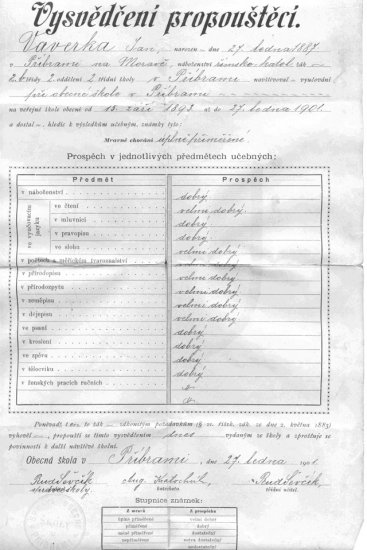 Vysvědčení propouštěcí.
Vaverka Jan, narozen dne 27. ledna 1887.
v Příbrami na Moravě, náboženství římsko-katol. žák
2. třídy 2. oddělení 2 třídní školy v Příbrami navštěvoval vyučování
při obecné škole v Příbrami
na veřejné škole obecné od 15. září 1893 až do 27. ledna 1901
a dostal, hledíc k výsledkům učebným, známky tyto:
Mravné chování úplně přiměřené.
Prospěch v jednotlivých předmětech učebných:
Předmět Prospěch
v náboženství dobrý
ve vyučovacím jazyku
ve čtení velmi dobrý
v mluvnici dobrý
v pravopisu dobrý
ve slohu dobrý
v počtech s měřickým tvaroznalstvím velmi dobrý
v přírodopisu velmi dobrý
v přírodozpytu velmi dobrý
v zeměpisu velmi dobrý
v dějepisu velmi dobrý
ve psaní dobrý
v kreslení dobrý
ve zpěvu dobrý
v tělocviku dobrý
v ženských pracích ručních
Poněvadž žák odborným požadavkům (§ 21. říšsk. zák. ze dne 2. května 1883)
vyhověl, propouští se tímto vysvědčením dnes vydaným ze školy a sprošťuje se
povinnosti k další návštěvě školní.
Obecná škola v Příbrami, dne 27. ledna 1901
Rud. Ševčík Aug. Rud. Ševčík
správce školy katecheta třídní učitel.
Stupnice známek:
Z mravů Z prospěchu
úplně přiměřené velmi dobrý
přiměřené dobrý
méně přiměřené dostatečný
nepřiměřené sotva dostatečný
nedostatečný